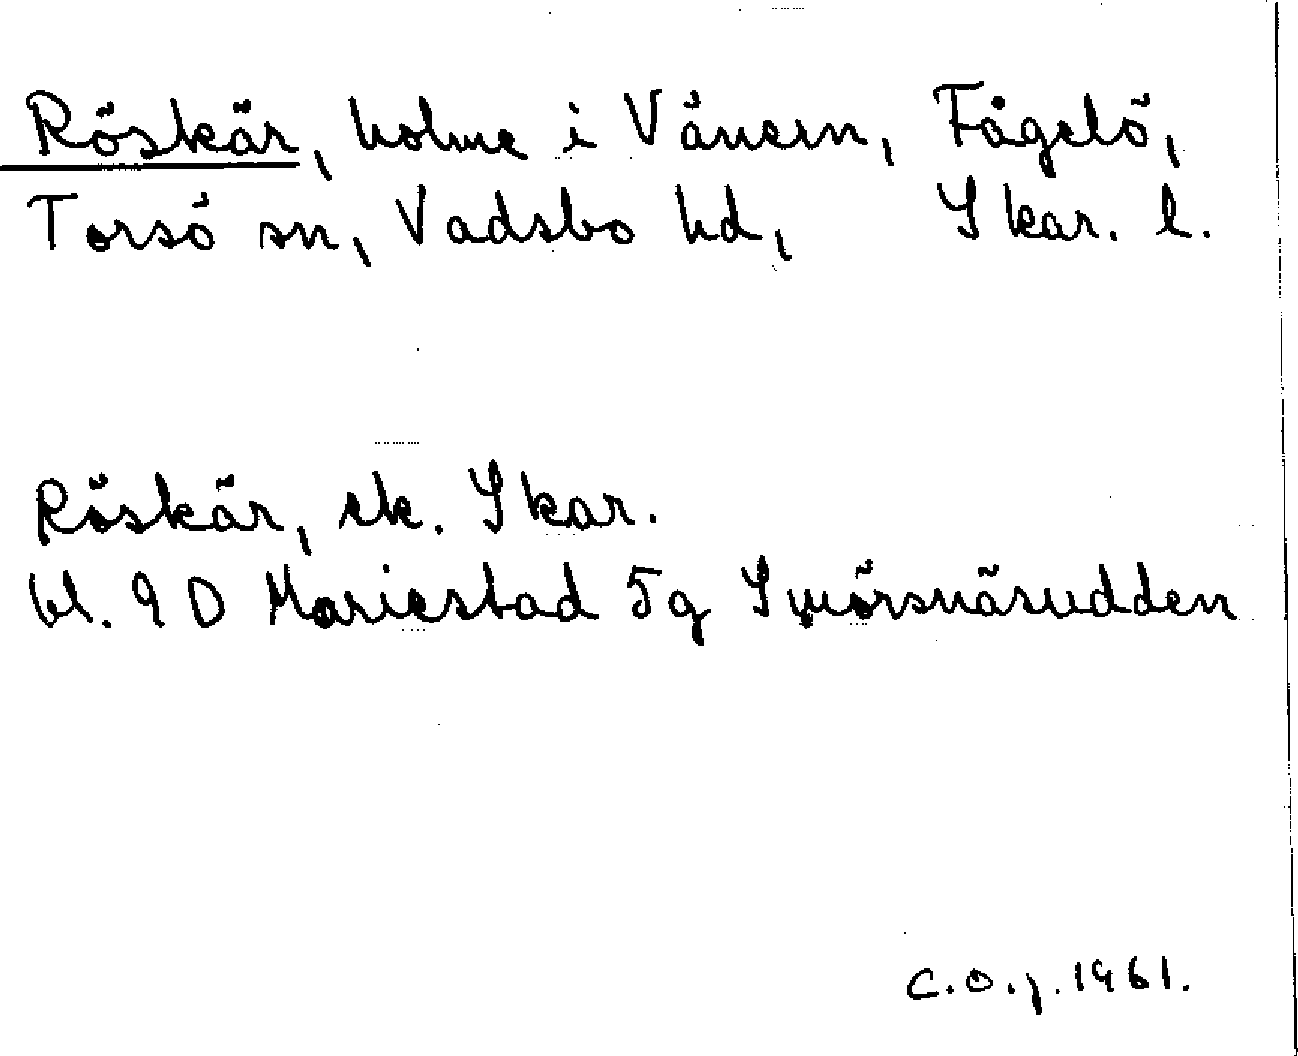 Röskär, holme i Vänern, Fågelö,
Torsö sn, Vadsbo hd, Skar. l.
Röskär, ek. Skar.
bl. 9 D Mariestad 5 g Smörsnäsudden
C.O.j. 1961.